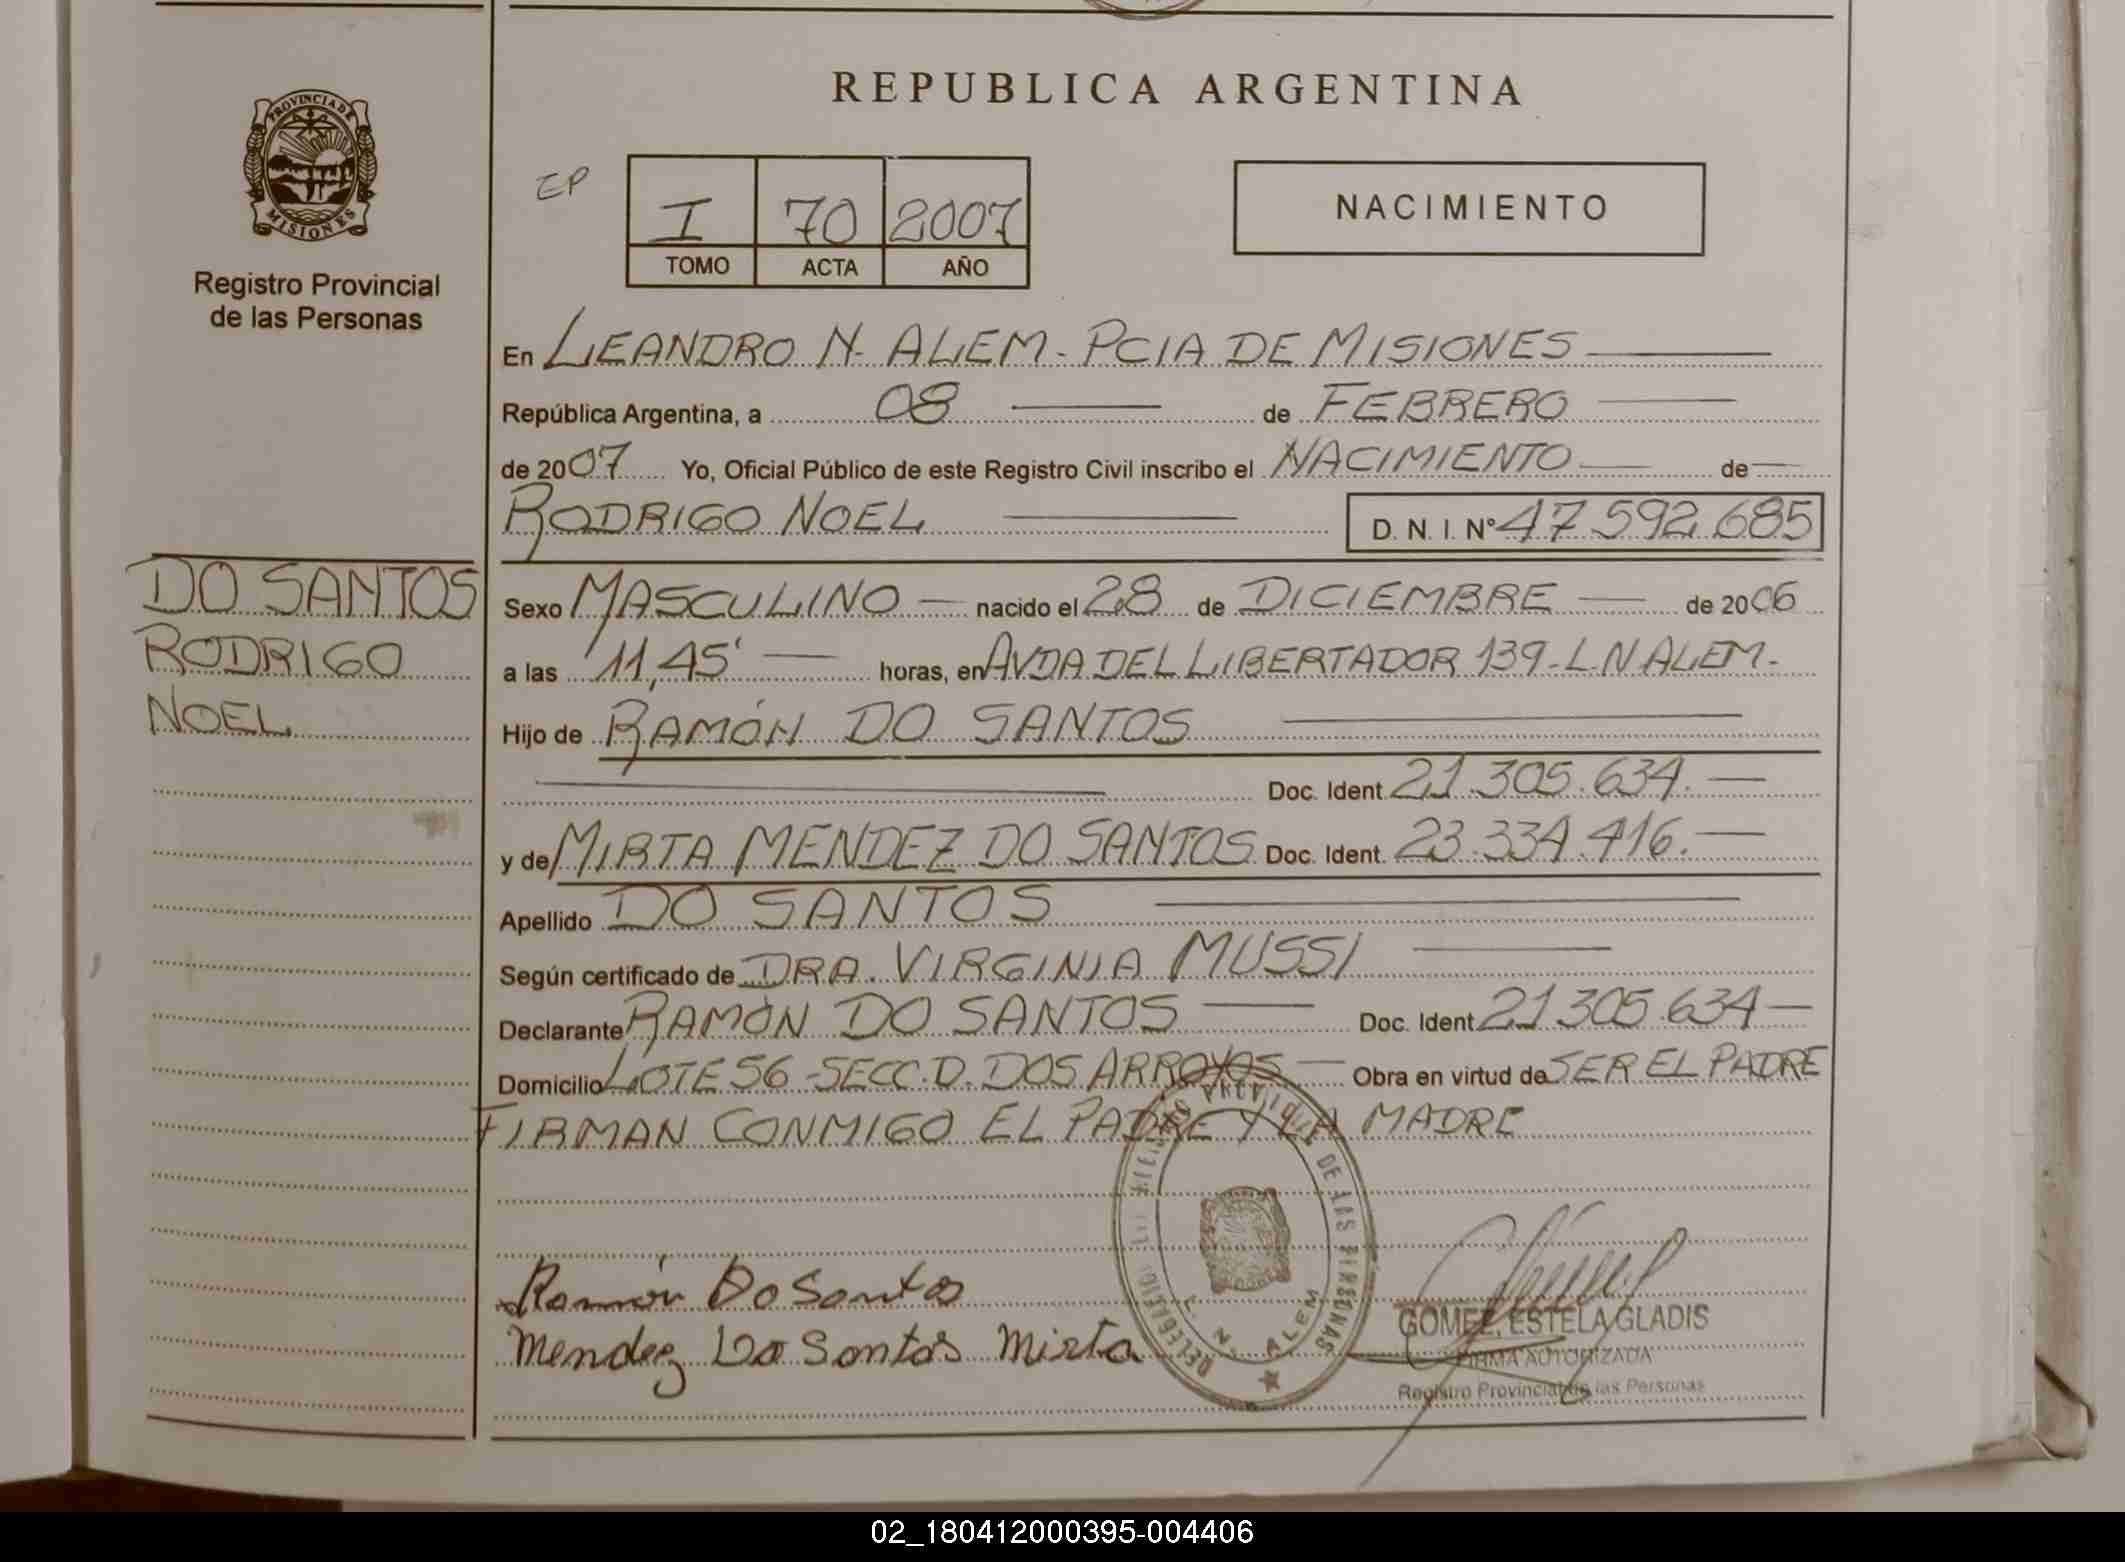 REPUBLICA ARGENTINA
PROVINCIA DE
MISIONES
Registro Provincial
de las Personas
EP
I 70 2007
TOMO ACTA AÑO
NACIMIENTO
En LEANDRO N. ALEM - PCIA DE MISIONES
República Argentina, a 08 de FEBRERO
de 2007 Yo, Oficial Público de este Registro Civil inscribo el NACIMIENTO de
RODRIGO NOEL D. N. I. Nº 47.592.685
DO SANTOS
RODRIGO
NOEL
Sexo MASCULINO nacido el 28 de DICIEMBRE de 2006
a las 11,45' horas, en AVDA DEL LIBERTADOR 139 - L. N ALEM -
Hijo de RAMÓN DO SANTOS
Doc. Ident. 21.305.634.
y de MIRTA MENDEZ DO SANTOS Doc. Ident. 23.334.416.
Apellido DO SANTOS
Según certificado de DRA. VIRGINIA MUSSI
Declarante RAMÓN DO SANTOS Doc. Ident. 21.305.634
Domicilio LOTE 56 - SECC. D. DOS ARROYOS Obra en virtud de SER EL PADRE
FIRMAN CONMIGO EL PADRE Y LA MADRE
DE LAS PERSONAS
L. N. ALEM
Ramón Do Santos
Mendez Do Santos Mirta
GOMEZ, ESTELA GLADIS
FIRMA AUTORIZADA
Registro Provincial de las Personas
02_180412000395-004406